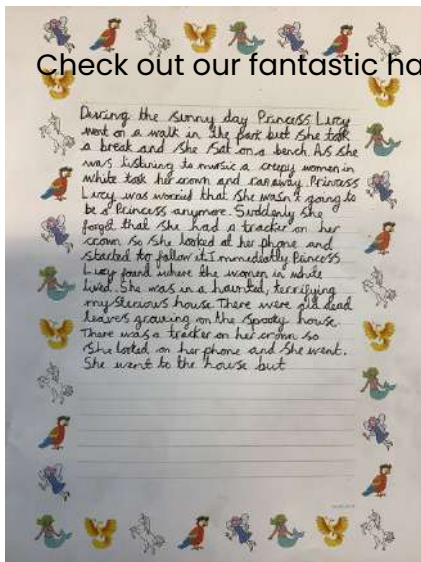 Check out our fantastic ha
During the sunny day Princess Lucy
went on a walk in the park but she took
a break and she sat on a bench. As she
was listning to music a creepy women in
white took her crown and ran away. Princess
Lucy was worried that she wasn't going to
be a Princess anymore. Suddenly she
forgot that she had a tracker on her
crown so she looked at her phone and
started to follow it. Immediatly Princess
Lucy found where the women in white
lived. She was in a haunted, terrifying
mysterious house. There were old dead
leaves growing on the spooky house.
There was a tracker on her crown so
she looked on her phone and she went.
She went to the house but